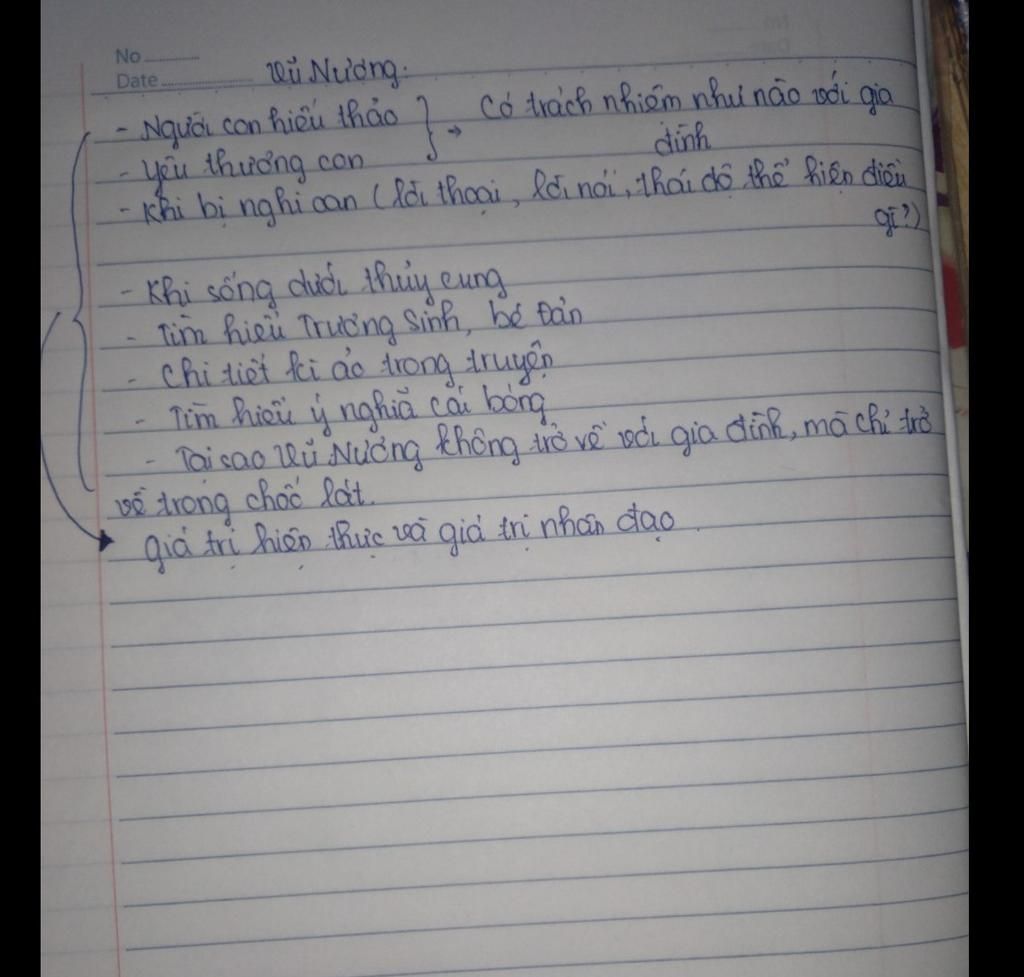 No
Date
Vũ Nương:
- Người con hiếu thảo } → Có trách nhiệm như nào với gia
đình
- Yêu thương con
- Khi bị nghi oan (lời thoại, lời nói, thái độ thể hiện điều
gì?)
- Khi sống dưới thủy cung
- Tìm hiểu Trương Sinh, bé Đản
- Chi tiết kì ảo trong truyện
- Tìm hiểu ý nghĩa cái bóng
- Tại sao Vũ Nương không trở về với gia đình, mà chỉ trở
về trong chốc lát.
giá trị hiện thực và giá trị nhân đạo.